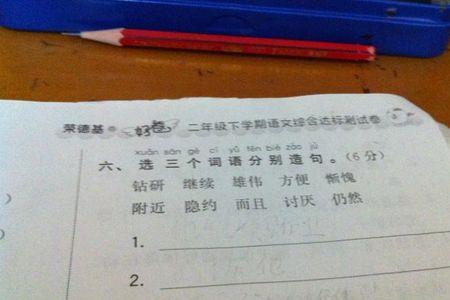 荣德基 好卷 二年级下学期语文综合达标测试卷
xuǎn sān gè cí yǔ fēn bié zào jù
六、选三个词语分别造句。(6分)
钻研 继续 雄伟 方便 惭愧
附近 隐约 而且 讨厌 仍然
1.
2.